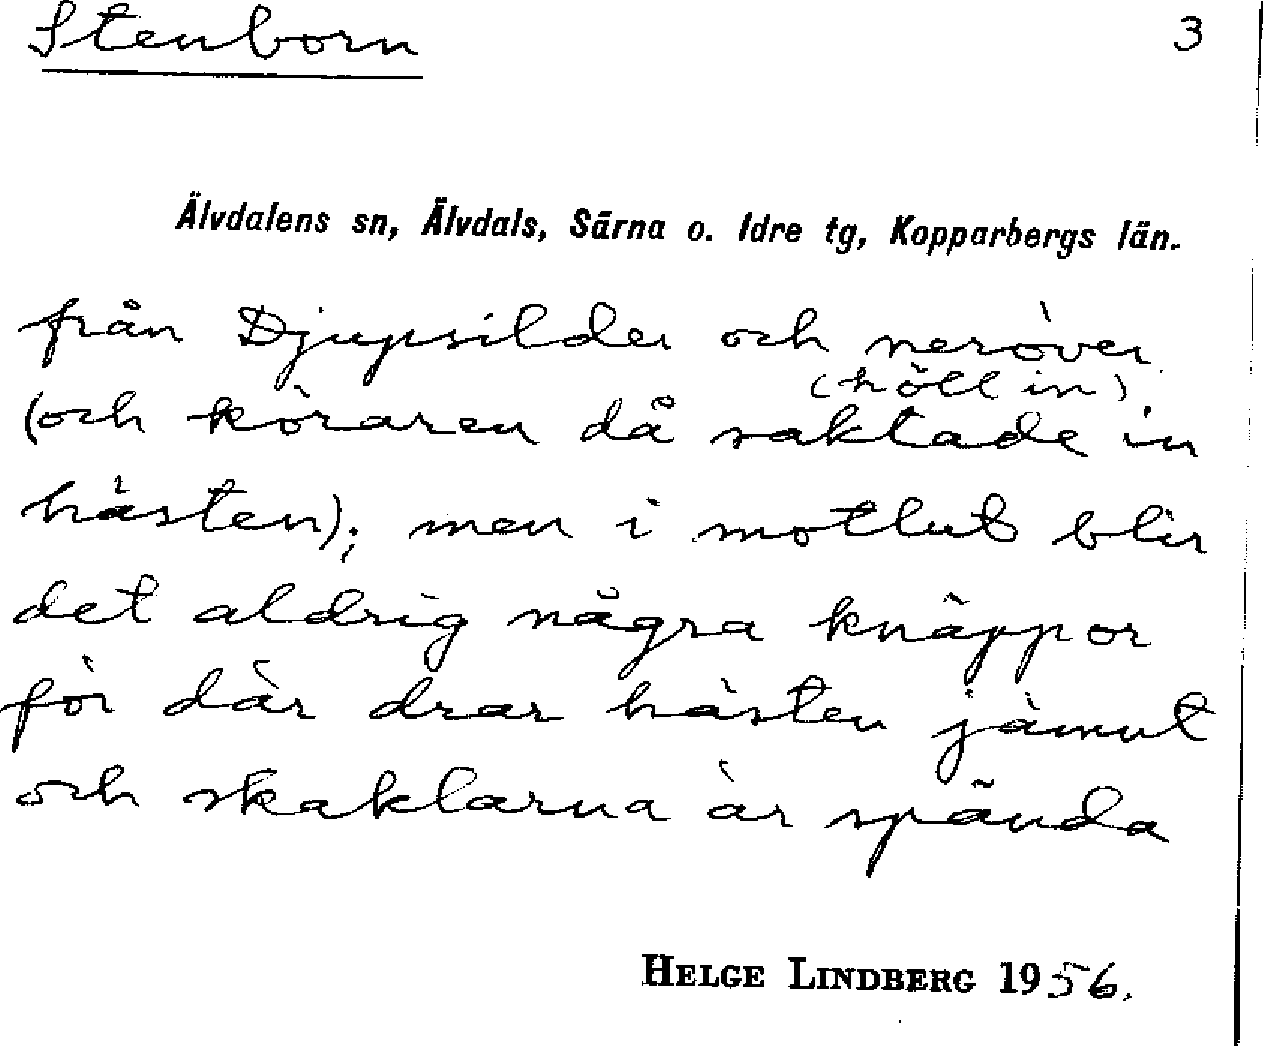 Stenborn 3
Älvdalens sn, Älvdals, Särna o. Idre tg, Kopparbergs län.
från Djupsilder och neröver
(höll in)
(och köraren då saktade in
hästen); men i motlut blir
det aldrig några knäppor
för där drar hästen jämnt
och skaklarna är spända
HELGE LINDBERG 1956.